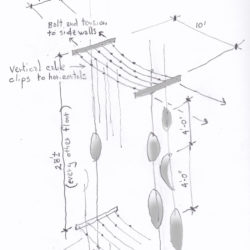 Bolt and tension
to side walls
10'
Vertical cable
clips to horizontals
28'±
(every other floor)
4'-0"
4'-0"